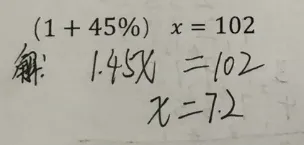 (1 + 45%) x = 102
解: 1.45x = 102
x = 7.2